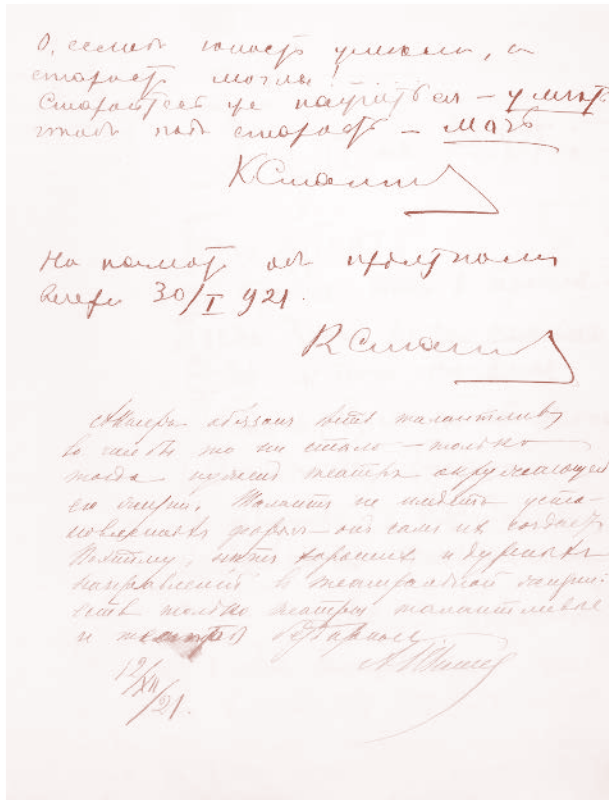 О, если бы юность умела, а
старость могла!
Старайтесь же научиться – уметь
чтобы под старость – мочь
КСтани
На память об приятном
вечере 30/I 921.
КСтани
Актеръ обязанъ быть талантливъ
во что бы то ни стало – только
тогда нуженъ театръ окружающей
его жизни. Талантъ не имѣетъ уста-
новленныхъ формъ – онъ самъ ихъ создаетъ
Поэтому, нѣтъ хорошихъ и дурныхъ
направленій въ театральной жизни:
есть только театры талантливые
и театры бездарные
12/XII/21.